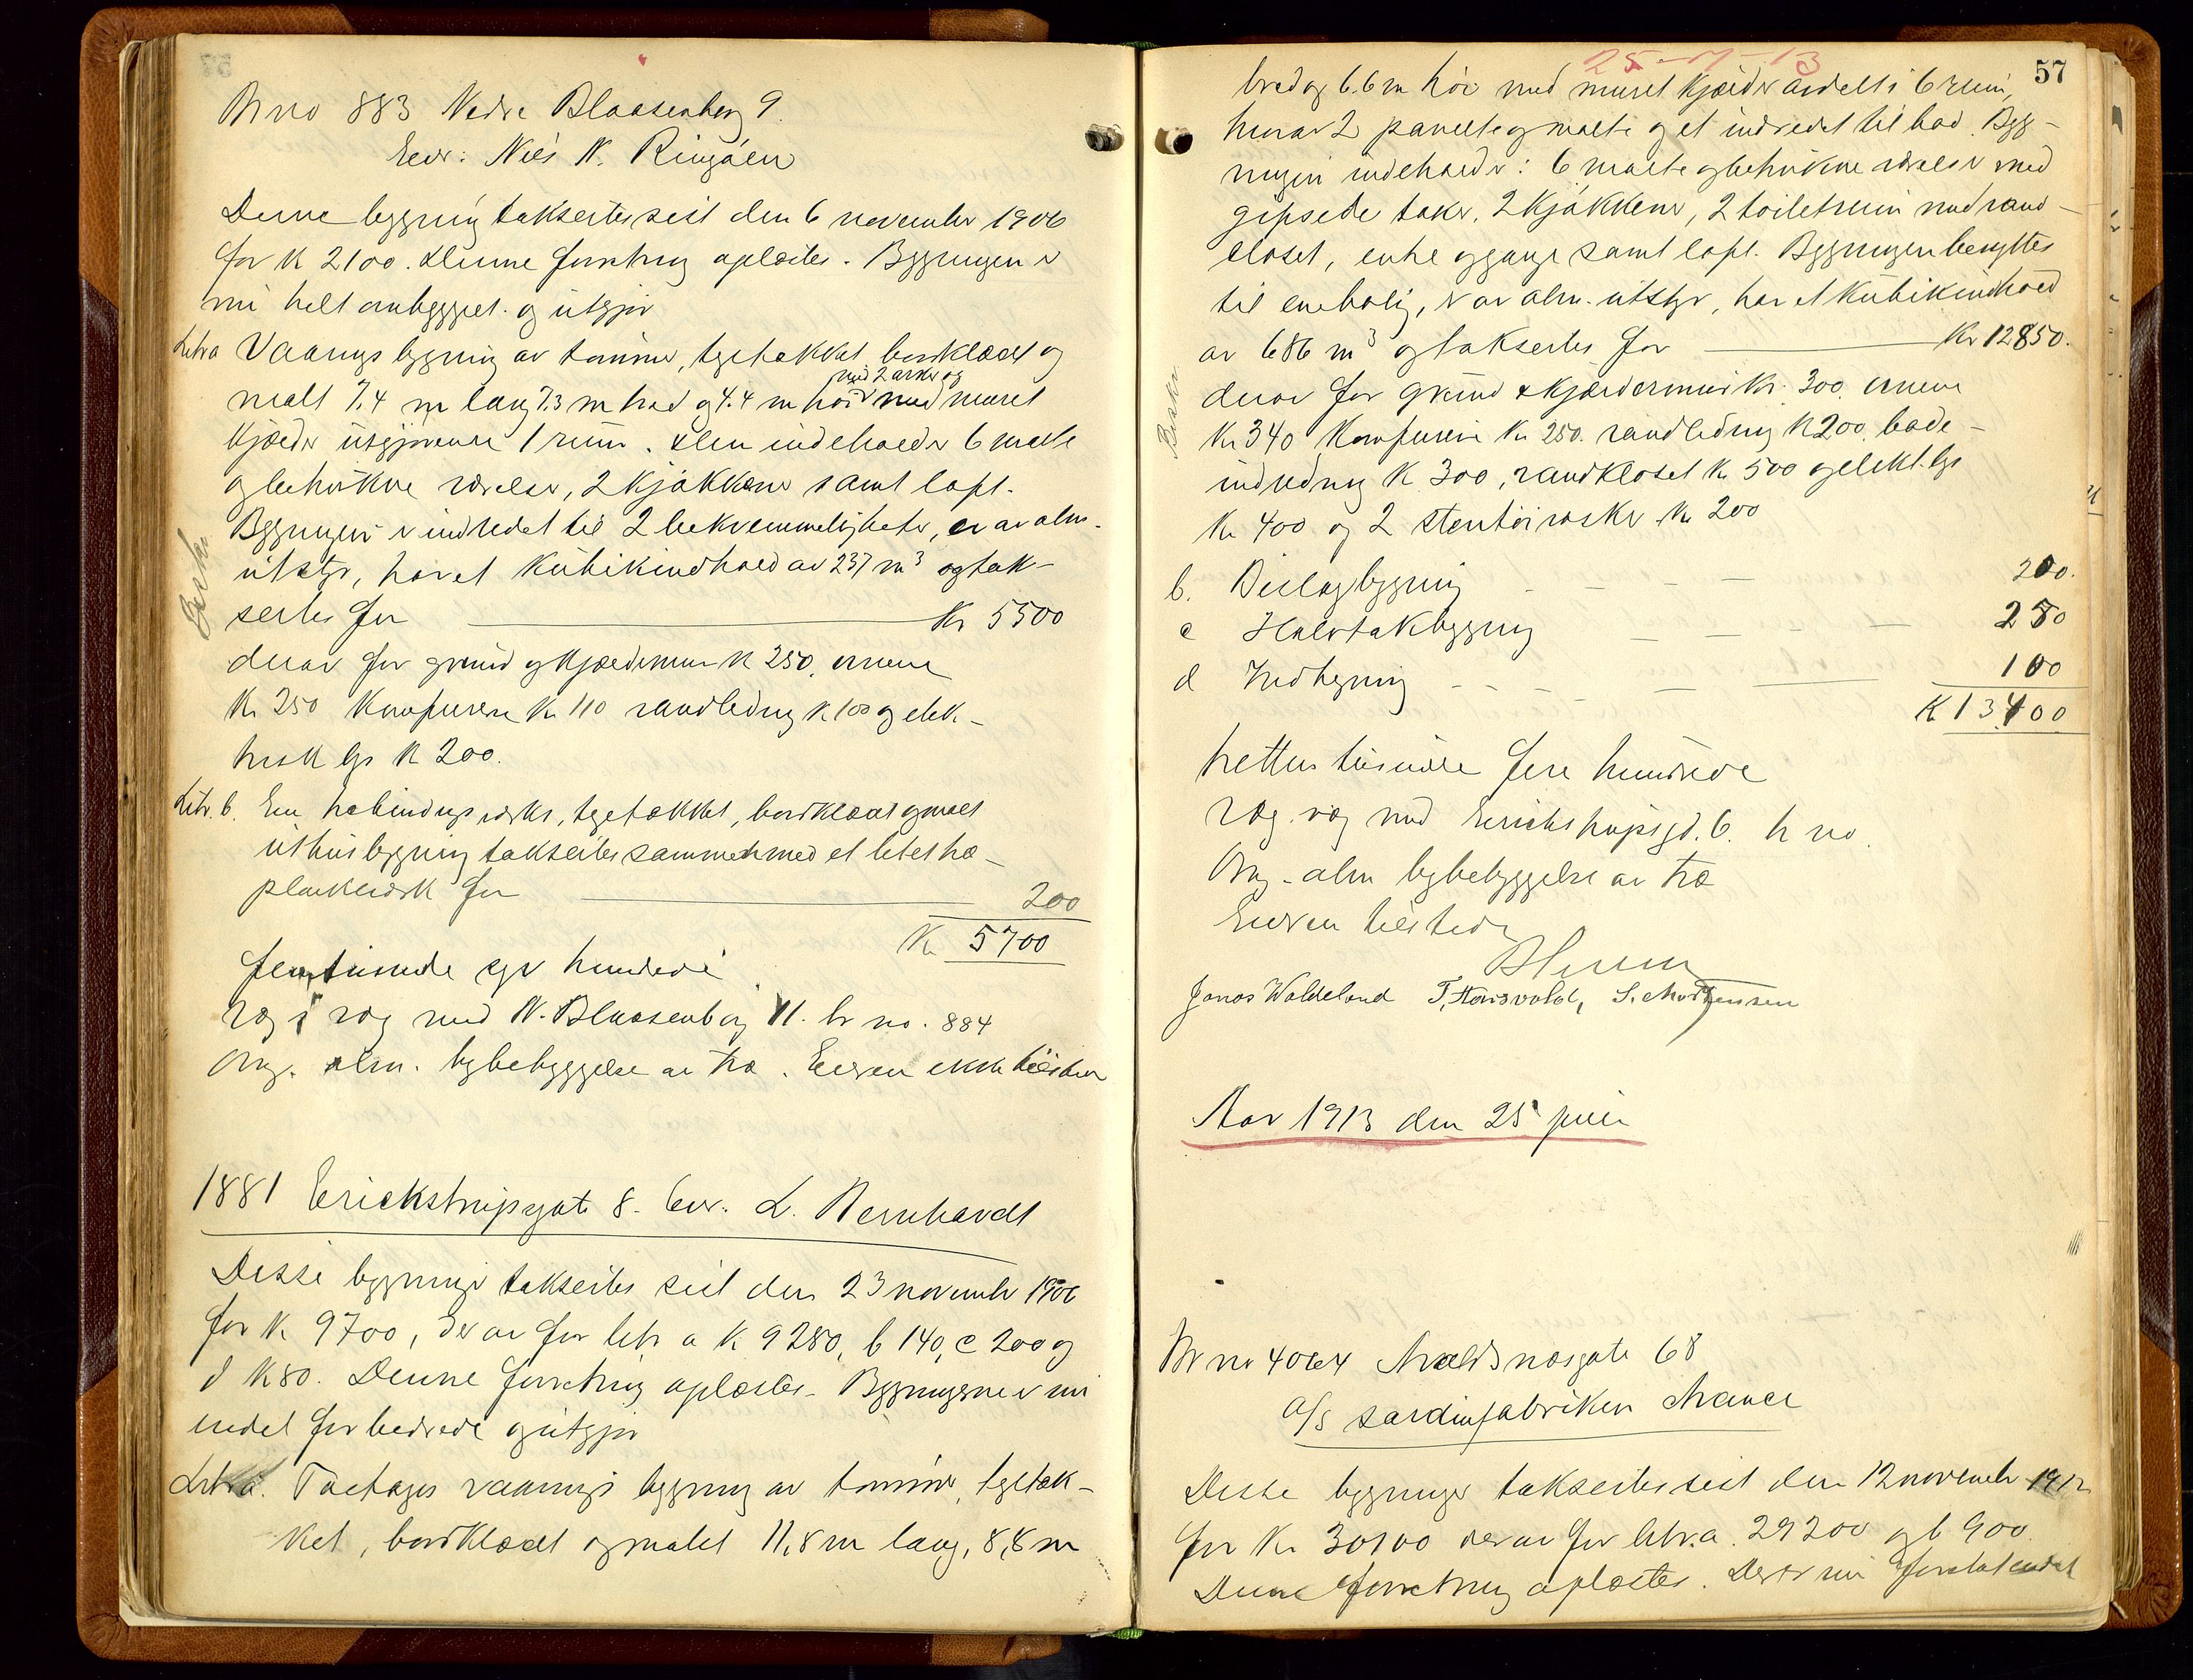 Br no 883 Nedre Blaasenberg 9.
Eier: Niels N. Ringøen
Denne bygning takseertes sist den 6 november 1906
for K 2100. Denne forretning oplæstes. Bygningen er
nu helt ombygget og utgjør
Litra Vaanings bygning av tømmer, tegltækket, bordklædt og
malt 7.4 m lang 7.3 m bred og 4.4 m høi med muret
med 2 arker og
kjælder utgjørende 1 rum. Den indeholder 6 malte
og betrukne værelser, 2 kjøkkener samt loft.
Bygningen er indredet til 2 bekvemmeligheter, er av alm.
utstyr, har et kubikindhold av 237 m³ og tak-
seertes for Kr 5500
derav for grund og kjældermur K 250, ovnene
Kr. 250 komfurene Kr 110 vandledning K 100 og elek-
trisk lys K 200.
Litr. b. En træbindingsverks, tegltækket, bordklædt og malt
uthusbygning takseertes sammen med et litet træ-
plankeverk for 200
Kr 5700
femtusinde syv hundrede
Væg i væg med N. Blaasenberg 11. br no. 884
Omg. alm. bybebyggelse av træ. Eieren ikke tilstede
1881 Erichstrupsgate 8. Eier. L. Bernhardt
Disse bygninger takseertes sist den 23 november 1906
for K. 9700, derav for litr a K 9280, b 140, c 200 og
d K 80. Denne forretning oplæstes. Bygningerne er nu
endel forbedrede og utgjør
Litra a. Toetages vaanings bygning av tømmer, tegltæk-
ket, bordklædt og malet 11,8 m lang, 8,8 m
25-7-13
57
bred og 6.6 m høi med muret kjælder avdelt i 6 rum,
hvorav 2 panelte og malte og et indredet til bad. Byg-
ningen indeholder: 6 malte og betrukne værelser med
gipsede taker, 2 kjøkkener, 2 toiletrum med vand-
closet, entre og gange samt loft. Bygningen benyttes
til enebolig, er av alm. utstyr, har et kubikindhold
av 686 m³ og takseertes for Kr 12850.
derav for grund & kjældermur Kr. 300. ovnene
Kr 340 komfurene Kr 250. vandledning K 200. bade-
indredning K 300, vandkloset Kr 500 og elekt. lys
Kr 400 og 2 stentøivaske Kr 200
b. Bislagbygning 200.
c Halvtakbygning 250
d Indhegning 100
K 13400
trettentusinde fire hundrede
Væg i væg med Erichstrupsgd. 6. br no.
Omg. alm bybebyggelse av træ
Eieren tilstede
Jonas Woldeland T. Hausvold, S. Mortensen
Aar 1913 den 25 juli
Br no 4064 Avaldsnæsgate 68
A/S sardinfabriken Avance
Disse bygninger takseertes sist den 12 november 1912
for Kr. 30100 derav for litr. a. 29200 og b 900.
Denne forretning oplæstes. Der er nu foretat endel